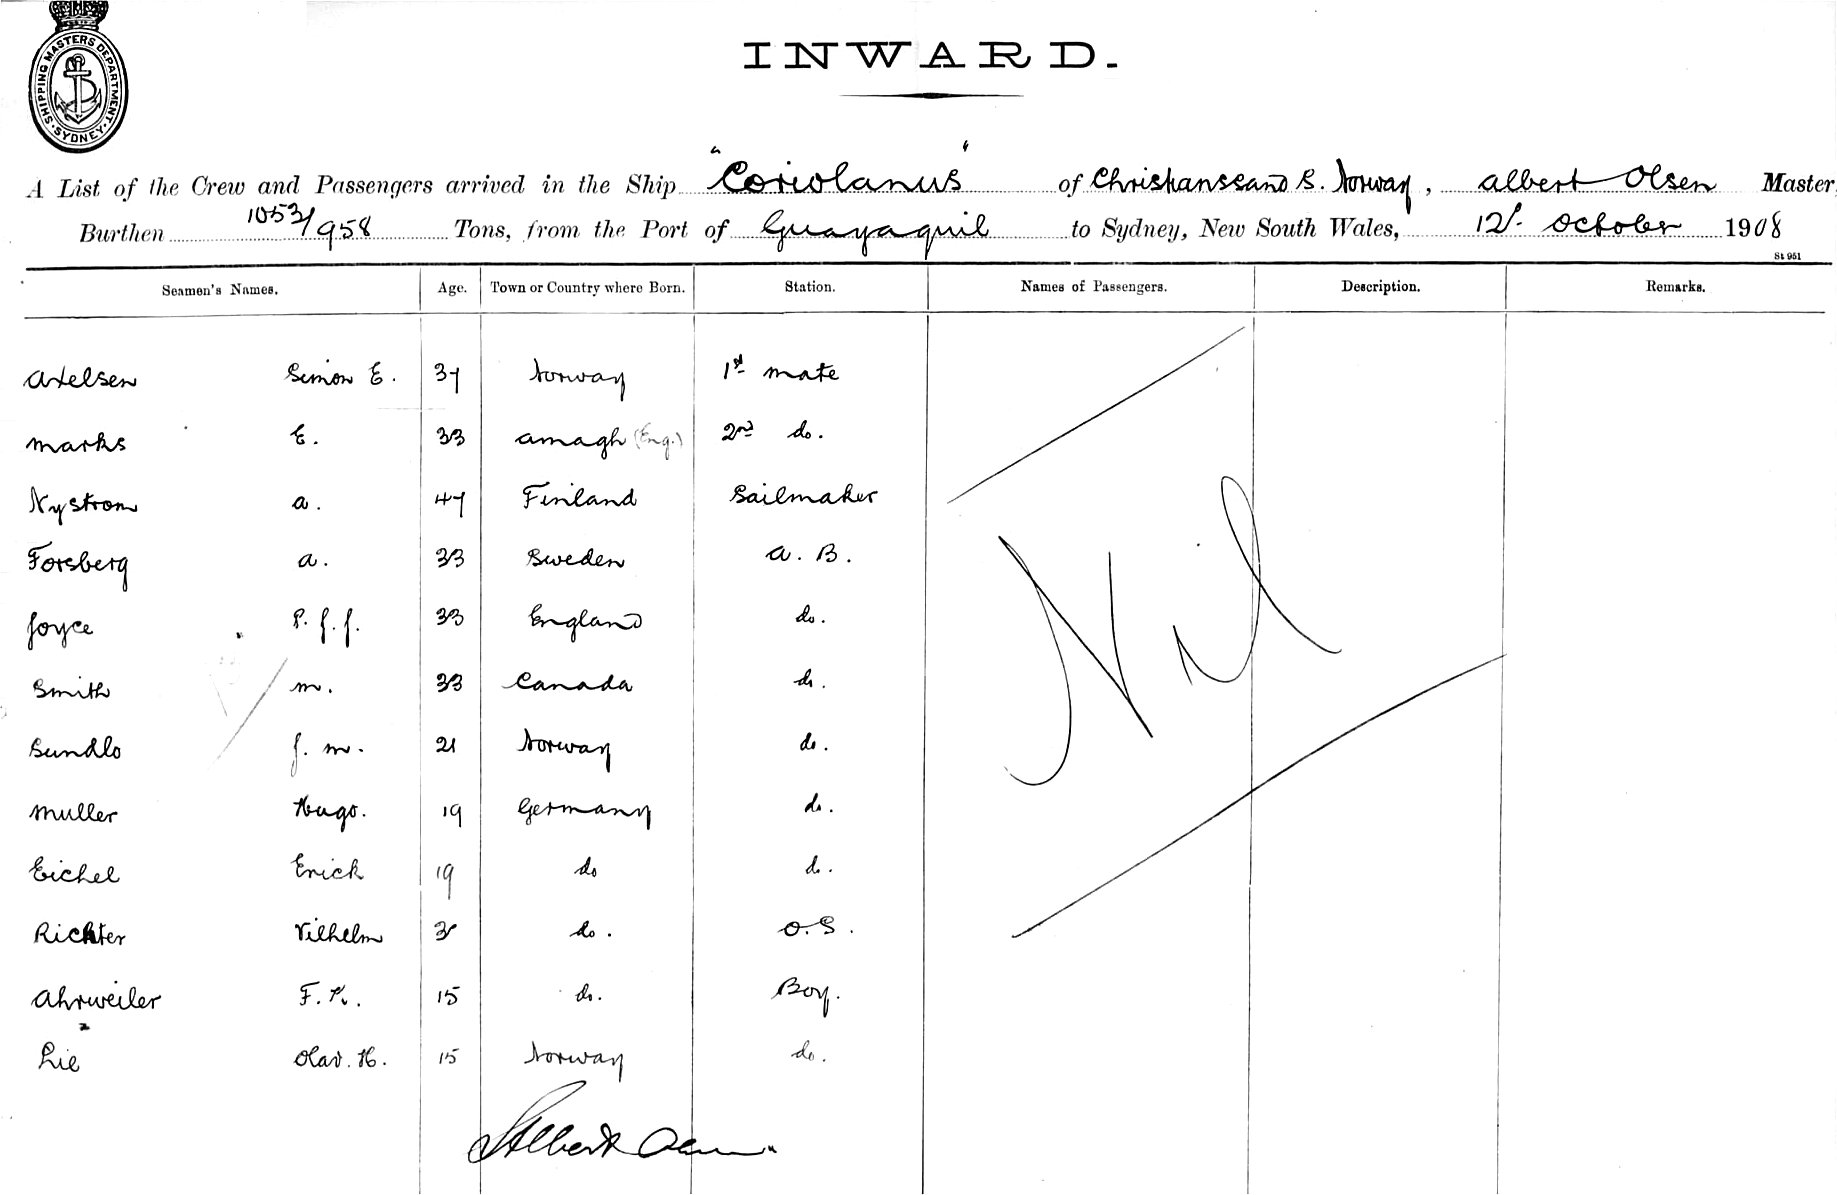 SHIPPING MASTERS DEPARTMENT. SYDNEY.
INWARD.
A List of the Crew and Passengers arrived in the Ship "Coriolanus" of Christianssand S. Norway, Albert Olsen Master
Burthen 1053/958 Tons, from the Port of Guayaquil to Sydney, New South Wales, 12th October 1908
St 951
Seamen's Names. Age. Town or Country where Born. Station. Names of Passengers. Description. Remarks.
Axelsen Simon E. 37 Norway 1st mate
Marks E. 33 Amagh (Eng.) 2nd do.
Nystrom A. 47 Finland Sailmaker
Forsberg A. 33 Sweden A. B.
Joyce P. J. J. 33 England do.
Smith M. 33 Canada do.
Sundlo J. M. 21 Norway do.
Muller Hugo. 19 Germany do.
Eichel Erick 19 do do.
Richter Vilhelm do. O.S.
Ahrweiler F. K. 15 do. Boy.
Lie Olav. H. 15 Norway do.
Nil
Albert Olsen